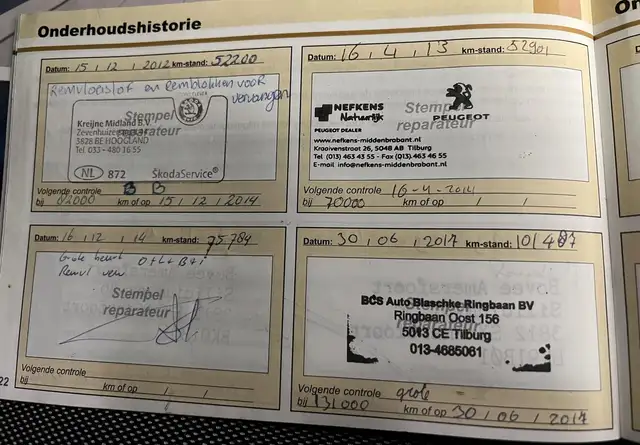 Onderhoudshistorie
Datum: 15 , 12 , 2012 km-stand: 52200
Remvloeistof en Remblokken voor
vervangen
Stempel
reparateur
Kreijne Midland B.V.
3828 BE HOOGLAND
Tel 033 - 480 36 55
NL 872 ŠkodaService®
Volgende controle B B
bij 82000 km of op 15 , 12 , 2014
Datum: 16 , 4 , 13 km-stand: 52901
NEFKENS
Natuurlijk
PEUGEOT
Stempel
reparateur
PEUGEOT DEALER
www.nefkens-middenbrabant.nl
Kraaivenstraat 26, 5048 AB Tilburg
Tel (013) 463 43 55 - Fax (013) 463 46 55
E-mail info@nefkens-middenbrabant.nl
Volgende controle 16-4-2014
bij 70000 km of op / /
Datum: 16 , 12 , 14 km-stand: 75.784
Grote beurt
Stempel
reparateur
Volgende controle
bij km of op / /
Datum: 30 , 06 , 2017 km-stand:
BCS Auto Blaschke Ringbaan BV
Ringbaan Oost 156
5013 CE Tilburg
013-4685061
Stempel
reparateur
Volgende controle grote
bij 131000 km of op 30 , 06 , 2017
22